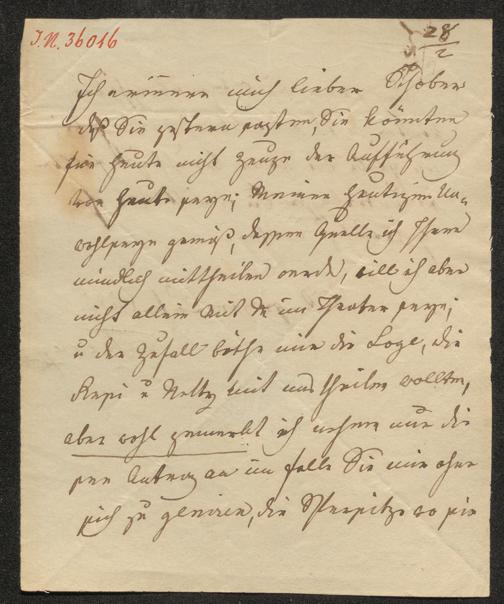 J.N. 36016
28/2
Ich erinnere mich lieber Schober
daß Sie gestern sagten, Sie könnten
für heute nicht Zeuge der Aufführung
von heute seyn; Meiner heutigen Un-
wohlseyn gemäß, dessen Quelle ich Ihnen
mündlich mittheilen werde, will ich aber
nicht allein mit im Theater seyn;
u der Zufall böthe mir die Loge, die
Resi u Netty mit uns theilen wollten,
aber wohl gemerkt ich nehme nur die
sen Antrag an im falle Sie mir ohne
sich zu geniren, die Sperrsitze wo sie